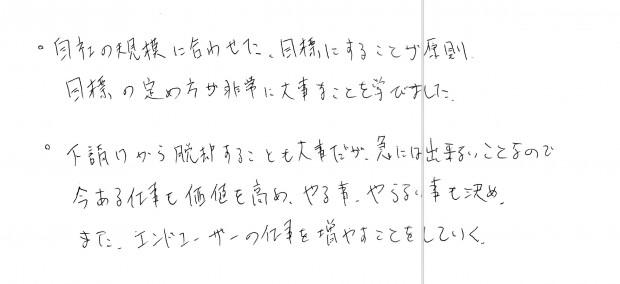 。自社の規模に合わせた、目標にすることが原則
目標の定め方が非常に大事なことを学びました。
。下請けから脱却することも大事だが、急には出来ないことなので
今ある仕事も価値を高め、やる事、やらない事も決め、
また、エンドユーザーの仕事を増やすことをしていく。